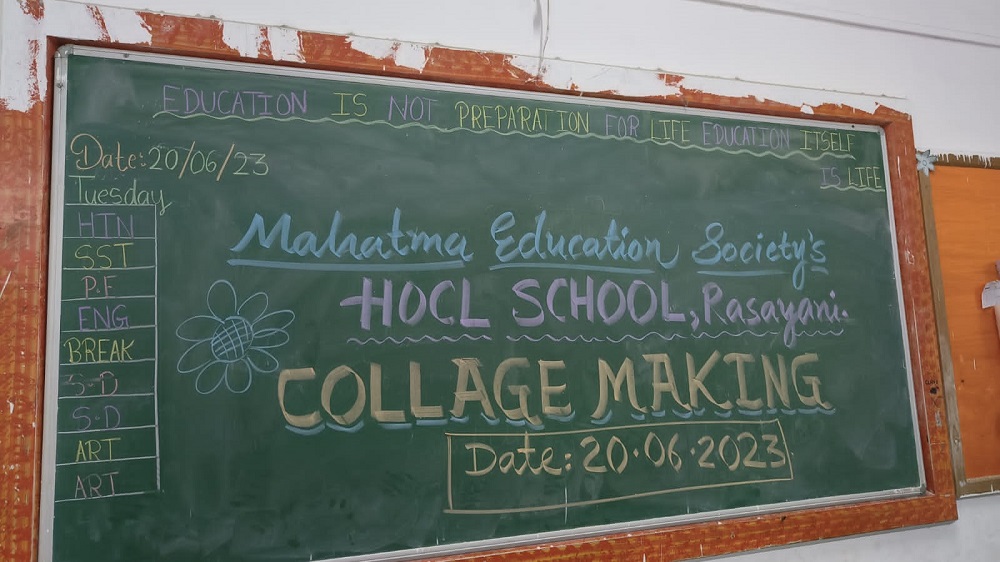 EDUCATION IS NOT PREPARATION FOR LIFE EDUCATION ITSELF
IS LIFE
Date: 20/06/23
Tuesday
HTN
SST
P.E
ENG
BREAK
S-D
S.D
ART
ART
Mahatma Education Society's
HOCL SCHOOL, Rasayani.
COLLAGE MAKING
Date: 20.06.2023